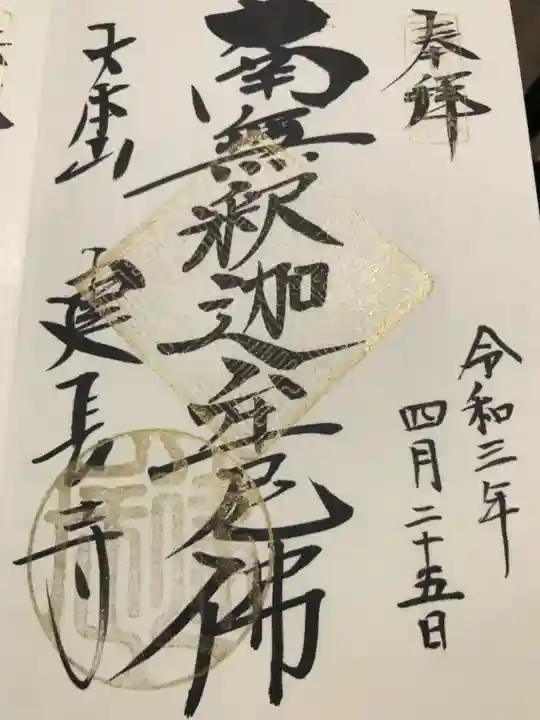 奉拝
令和三年
四月二十五日
南無釈迦牟尼佛
天库山
建長寺